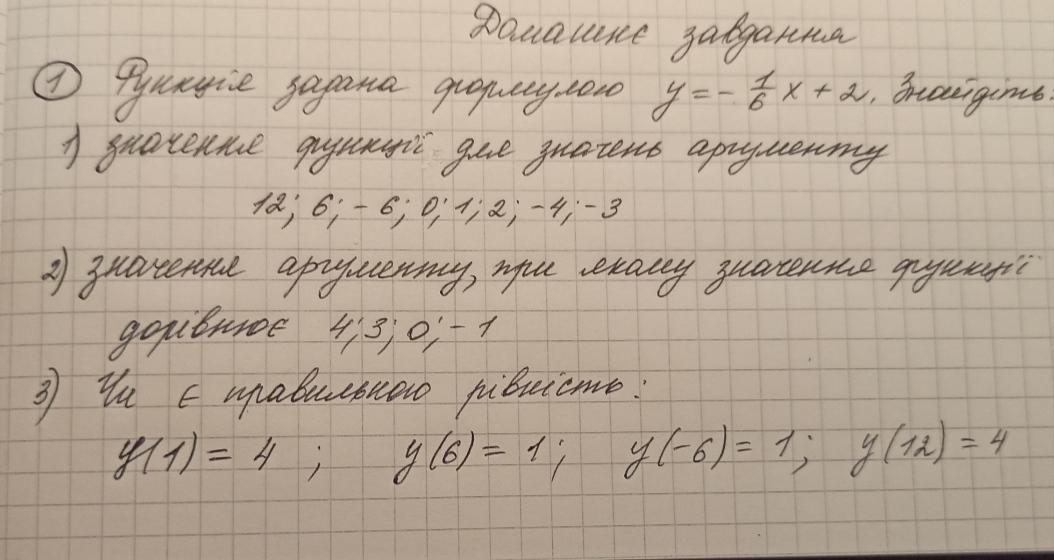 Домашнє завдання
1 Функція задана формулою y = - 1/6 x + 2. Знайдіть:
1) значення функції для значень аргументу
12; 6; - 6; 0; 1; 2; -4; -3
2) значення аргументу, при якому значення функції
дорівнює 4; 3; 0; - 1
3) Чи є правильною рівність:
y(1) = 4 ; y(6) = 1; y(-6) = 1; y(12) = 4